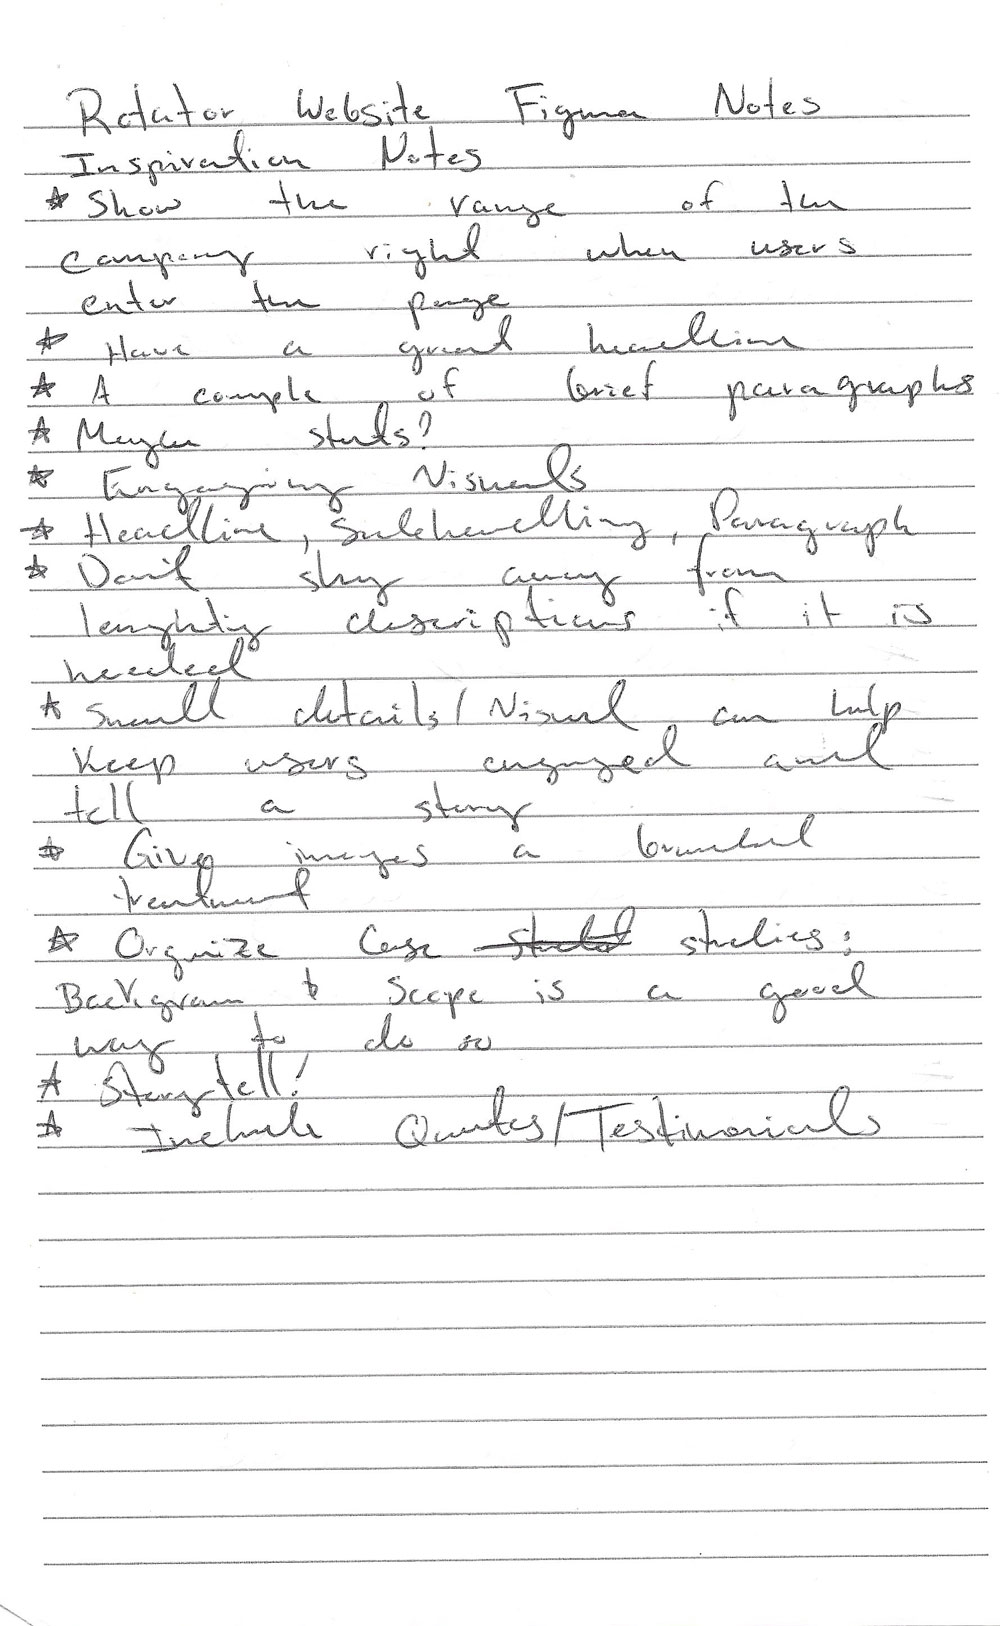 Rotator Website Figma Notes
Inspiration Notes
* Show the range of the
company right when users
enter the page
* Have a great headline
* A couple of brief paragraphs
* Maybe stats?
* Engaging Visuals
* Headline, Subheadling, Paragraph
* Don't shy away from
lenghty descriptions if it is
needed
* Small details/Visual can help
Keep users engaged and
tell a story
* Give images a branded
treatment
* Organize Case studies:
Background & Scope is a good
way to do so
* Storytell!
* Include Quotes/Testimonials